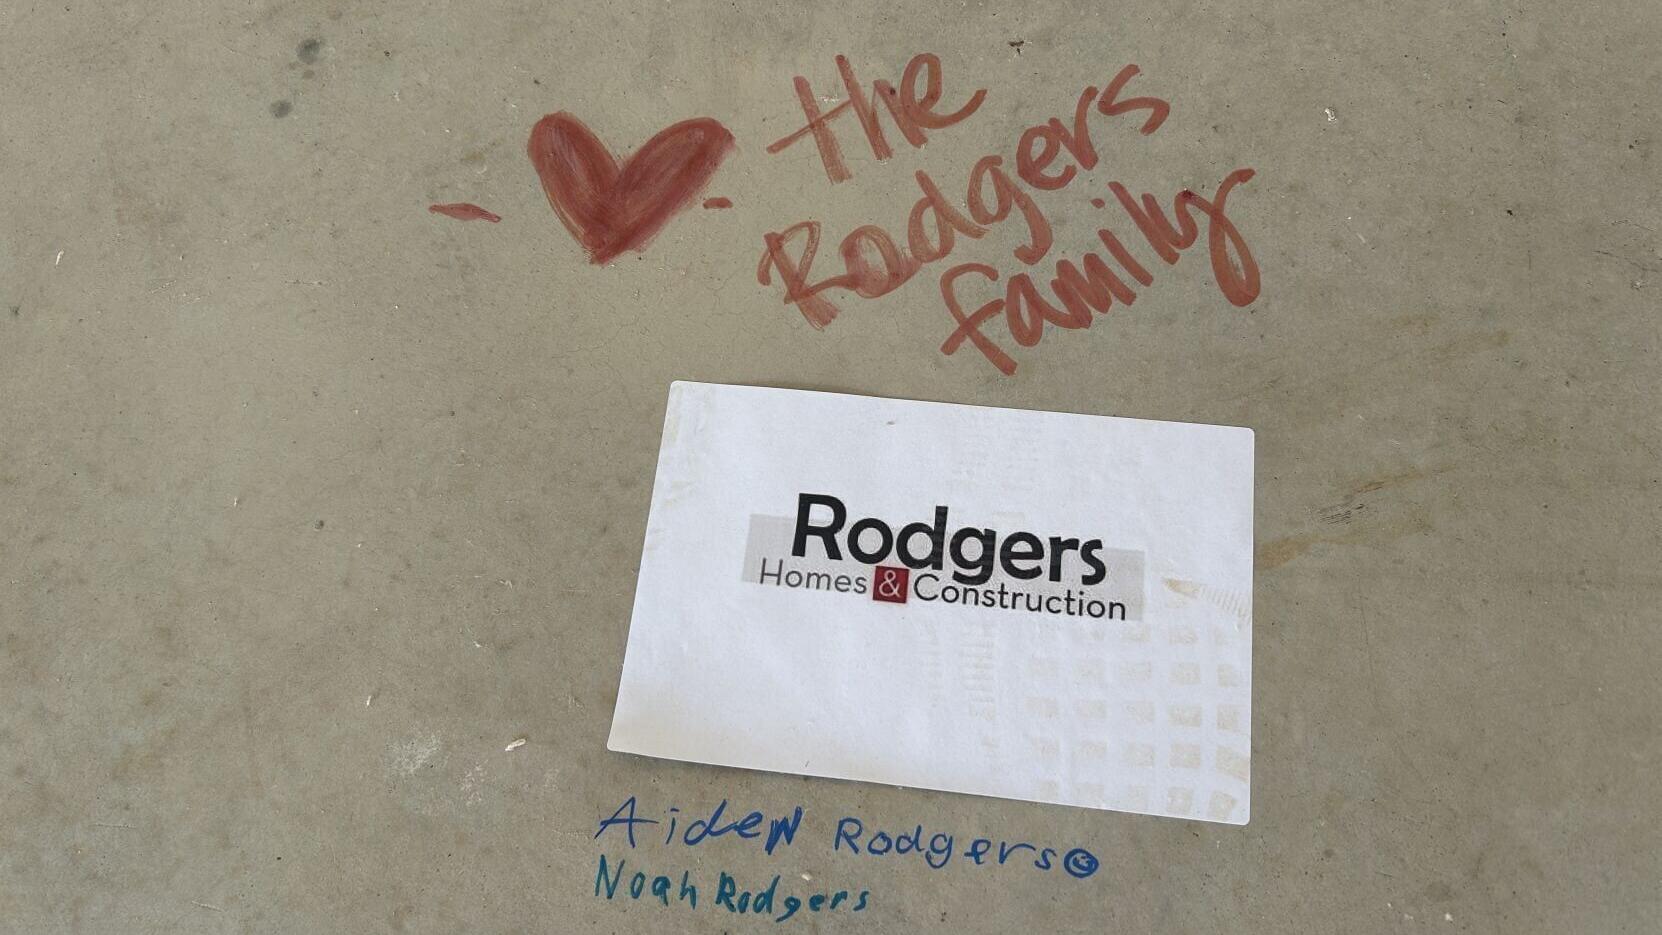 the
Rodgers
family
Rodgers
Homes & Construction
Aiden Rodgers
Noah Rodgers